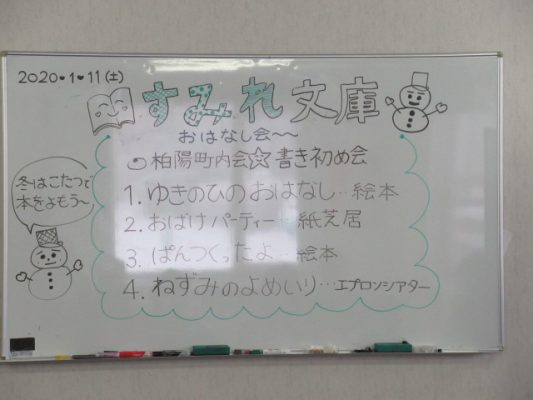 2020・1・11(土)
すみれ文庫
おはなし会〜〜
柏陽町内会☆書き初め会
1. ゆきのひのおはなし…絵本
2. おばけパーティー…紙芝居
3. ぱんつくったよ…絵本
4. ねずみのよめいり…エプロンシアター
冬はこたつで
本をよもう〜